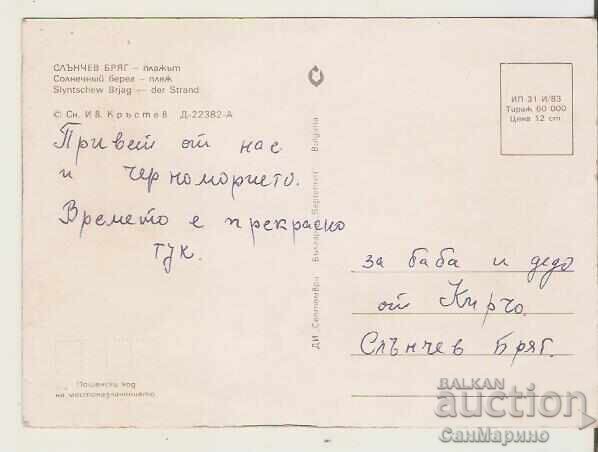 СЛЪНЧЕВ БРЯГ — плажът
Солнечный берег — пляж
Slyntschew Brjag — der Strand
© Сн. Ив. Кръстев Д-22382-А
Привет от нас
и черноморието.
Времето е прекрасно
тук.
ДИ „Септември" България Septemvri Bulgaria
ИП 31 И/83
Тираж 60 000
Цена 12 ст
за баба и дедо
от Кирчо.
Слънчев Бряг.
Пощенски код
на местоназначението
BALKAN
auction
СанМарино